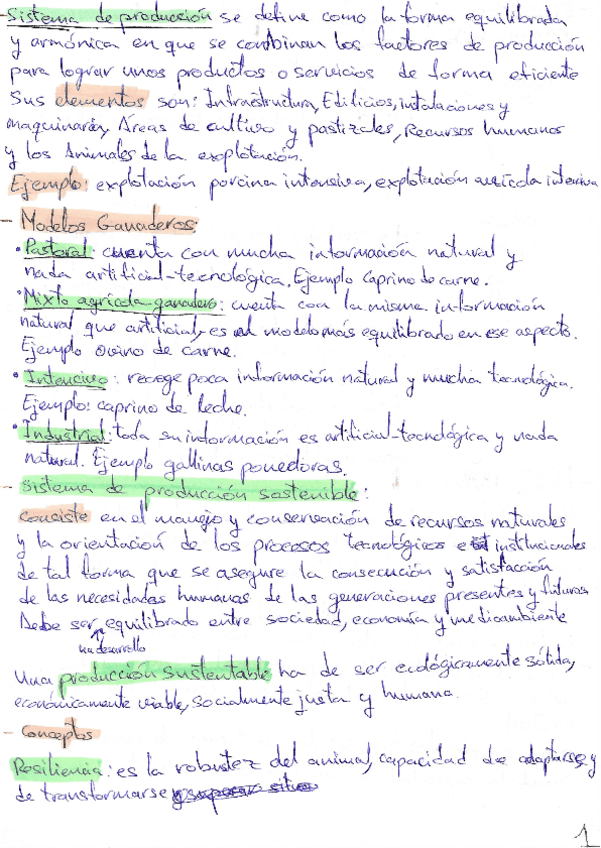 - Sistema de producción se define como la forma equilibrada
y armónica en que se combinan los factores de producción
para lograr unos productos o servicios de forma eficiente
Sus elementos son: Infraestructura, Edificios, instalaciones y
maquinaria, Áreas de cultivo y pastizales, Recursos humanos
y los Animales de la explotación.
Ejemplo: explotación porcina intensiva, explotación avícola intensiva
- Modelos Ganaderos:
· Pastoral: cuenta con mucha información natural y
nada artificial-tecnológica. Ejemplo Caprino de carne.
· Mixto agrícola-ganadero: cuenta con la misma información
natural que artificial, es el modelo más equilibrado en ese aspecto.
Ejemplo Ovino de carne.
· Intencivo: recoge poca información natural y mucha tecnológica.
Ejemplo: caprino de leche.
· Industrial: toda su información es artificial-tecnológica y nada
natural. Ejemplo gallinas ponedoras.
- Sistema de producción sostenible:
Consiste en el manejo y conservación de recursos naturales
y la orientación de los procesos tecnológicos e institucionales
de tal forma que se asegure la consecución y satisfacción
de las necesidades humanas de las generaciones presentes y futuras
Debe ser equilibrado entre sociedad, economía y medioambiente
un desarrollo
Una producción sustentable ha de ser ecológicamente sólida,
económicamente viable, socialmente justa y humana.
- Conceptos
Resiliencia: es la robustez del animal, capacidad de adaptarse y
de transformarse
1